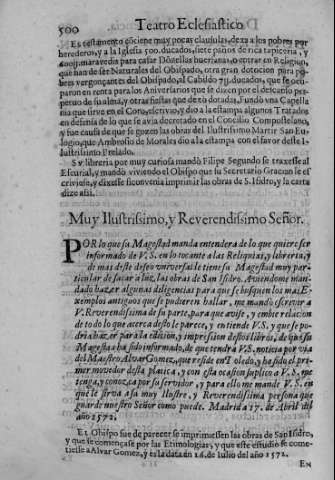 500 Teatro Eclesiastico
Es testamento cõtiene muy pocas clausulas, dexa a los pobres por
herederos, y a la Iglesia 500. ducados, siete paños de rica tapiceria, y
maravedis para casar Dõzellas huerfanas, o entrar en Religion,
que han de ser Naturales del Obispado, otra gran dotacion para po
bres vergonçantes del Obispado, al Cabildo ducados, que se
paron en renta para los Aniversarios que se dizen por el descanso per
petuo de su alma, y otras fiestas que dexò dotadas. Fundò vna Capella
nia que sirve en el Coro, escriviò, y diò a la estampa algunos Tratados
en defensa de lo que se avia decretado en el Concilio Compostelano,
y fue causa de que se gozen las obras del Ilustrissimo Martir San Eu
logio, que Ambrosio de Morales diò a la estampa con el favor deste I-
lustrissimo Prelado.
Su libreria por muy curiosa mandò Filipe Segundo se traxesse al
Escurial, y mandò viviendo el Obispo que su Secretario Gracian le es
criviesse, y dixesse si convenia imprimir las obras de S. Isidro, y la carta
dize assi.
Muy Ilustrissimo, y Reverendissimo Señor.
POR lo que su Magestad manda entenderà de lo que quiere ser
informado de V. S. en lo tocante a las Reliquias, y libreria, y
de mas deste deseo vniversal le tiene su Magestad muy par-
ticular de sacar a luz, las obras de San Isidro. Aviendome man-
dado hazer algunas diligencias para que se busquen los mas E-
xemplos antiguos que se pudieren hallar, me mandò escrevir a
V. Reverendissima de su parte, para que avise, y embie relacion
de todo lo que acerca desto le parece, y entiende V. S. y que se po-
dria hazer para la edicion, y impression destos libros, de que su
Magestad ha sido informado, de que tendrà V. S. noticia por via
del Maestro Alvar Gomez, que reside en Toledo, y ha sido el pri-
mer movedor desta platica, y con esta ocasion suplico a V. S. me
tenga, y conozca por su servidor, y para ello me mande V. S. en
què le sirva a su muy Ilustre, y Reverendissima persona que
guarde nuestro Señor como puede. Madrid a 17. de Abril del
año 1572.
El Obispo fue de parecer se imprimiessen las obras de San Isidro,
y que se començasse por las Etimologias, y que este estudio se come-
tiesse a Alvar Gomez, y es la data en 16. de Iulio del año 1572.
EN